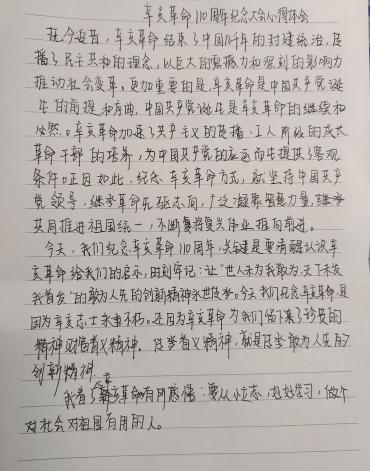 辛亥革命110周年纪念大会心得体会
在今近百,辛亥革命结束了中国几千年的封建统治,传
播了民主共和的理念,以巨大的震撼力和深刻的影响力
推动社会变革。更加重要的是,辛亥革命是中国共产党诞
生的前提和序曲,中国共产党诞生是辛亥革命的继续和
必然。辛亥革命加速了共产主义的传播、工人阶级的成长
革命干部的培养,为中国共产党的应运而生提供了客观
条件。正因如此,纪念辛亥革命方式,就坚持中国共产
党领导,继承革命先驱志向,广泛凝聚智慧力量,继续
共同推进祖国统一,不断将复兴伟业推向前进。
今天,我们纪念辛亥革命110周年,关键是要清醒认识辛
亥革命给我们的启示,时刻牢记:让"世人未为我敢为,天下未发
我首发"的敢为人先的创新精神永世传承。今天我们纪念辛亥革命,是
因为辛亥志士永垂不朽。还因为辛亥革命为我们留下了珍贵的
精神财富首义精神。传半首义精神,就是传半敢为人先的
创新精神。
我看了辛亥革命有所感悟:要从小立志,好好学习,做个
对社会对祖国有用的人。